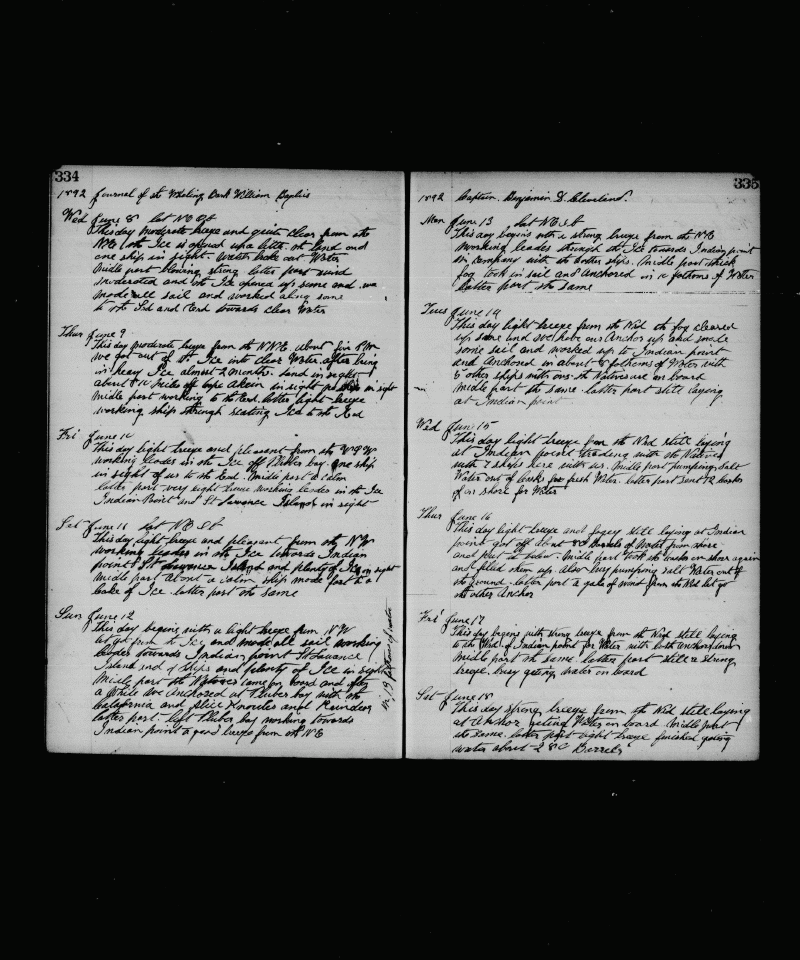 334
1892 Journal of the Whaling Bark William Baylies
Wed June 8
This day moderate breeze and quite clear from the
NNE the Ice is opened up a little the land and
one ship in sight. water
Middle part blowing strong latter part wind
moderated and the Ice opened up some and we
made all sail and worked along some
to the Nd and Eerd towards clear Water
Thur June 9
This day moderate breeze from the NNE. about
we got out of the Ice into clear Water after being
in heavy Ice almost 2 months. Land in sight
about miles off in sight in sight
Middle part working to the Eerd. latter light breeze
working ship through Ice to the Eerd
Fri June 10
This day light breeze and pleasant from the
working leades in the Ice off Pluber bay. One ship
in sight of us to the Eerd. Middle part a calm
latter part very light breeze working leades in the Ice
Indian Point and St Lawance Island in sight
Sat June 11
This day light breeze and pleasant from the NW
working leades in the Ice towards Indian
point St Lawance Island and plenty of Ice in sight
Middle part about a calm ship made fast to a
cake of Ice. latter part the same
Sun June 12
This day begins with a light breeze from NW
from the Ice and made all sail working
leades towards Indian point St Lawance
Island and 4 ships and plenty of Ice in sight
Middle part the Natives came on board and after
a while we Anchored at Pluber bay with the
California and Alice Knowles and Reindeer
in 19 fathoms of water
latter part. left Pluber bay working towards
Indian point a good breeze from the NE
335
1892 Captain. Benjamin D. Cleveland.
Mon June 13
This day begins with a strong breeze from the NE
Working leades through the Ice towards Indian point
in company with the other ships. Middle part thick
fog took in sail and anchored in fathoms of Water
latter part the same
Tues June 14
This day light breeze from the Nd the fog cleared
up some and we hove our Anchor up and made
some sail and worked up to Indian point
and Anchored in about 8 fathoms of Water with
6 other ships with ours. the Natives are on board
Middle part the same. latter part still laying
at Indian point
Wed June 15
This day light breeze from the Nd still laying
at Indian point trading with the Natives
with 7 ships here with us. Middle part pumping salt
Water out of casks for fresh Water. latter part sent 12 casks
on shore for Water
Thur June 16
This day light breeze and foggy still laying at Indian
point got off about 80 Barrels of Water from shore
and put it below. Middle part took the casks on shore again
and filled them up. also busy pumping salt Water out of
the Ground. latter part a gale of wind from the Nd let go
the other Anchor
Fri June 17
This day begins with strong breeze from the Nerd still laying
to the of Indian point for Water with both anchors down
Middle part the same. latter part still a strong
breeze. busy geting water on board
Sat June 18
This day strong breeze from the Nd still laying
at Anchor geting Water on board. Middle part
the same. latter part light breeze finished geting
water about 280 Barrels